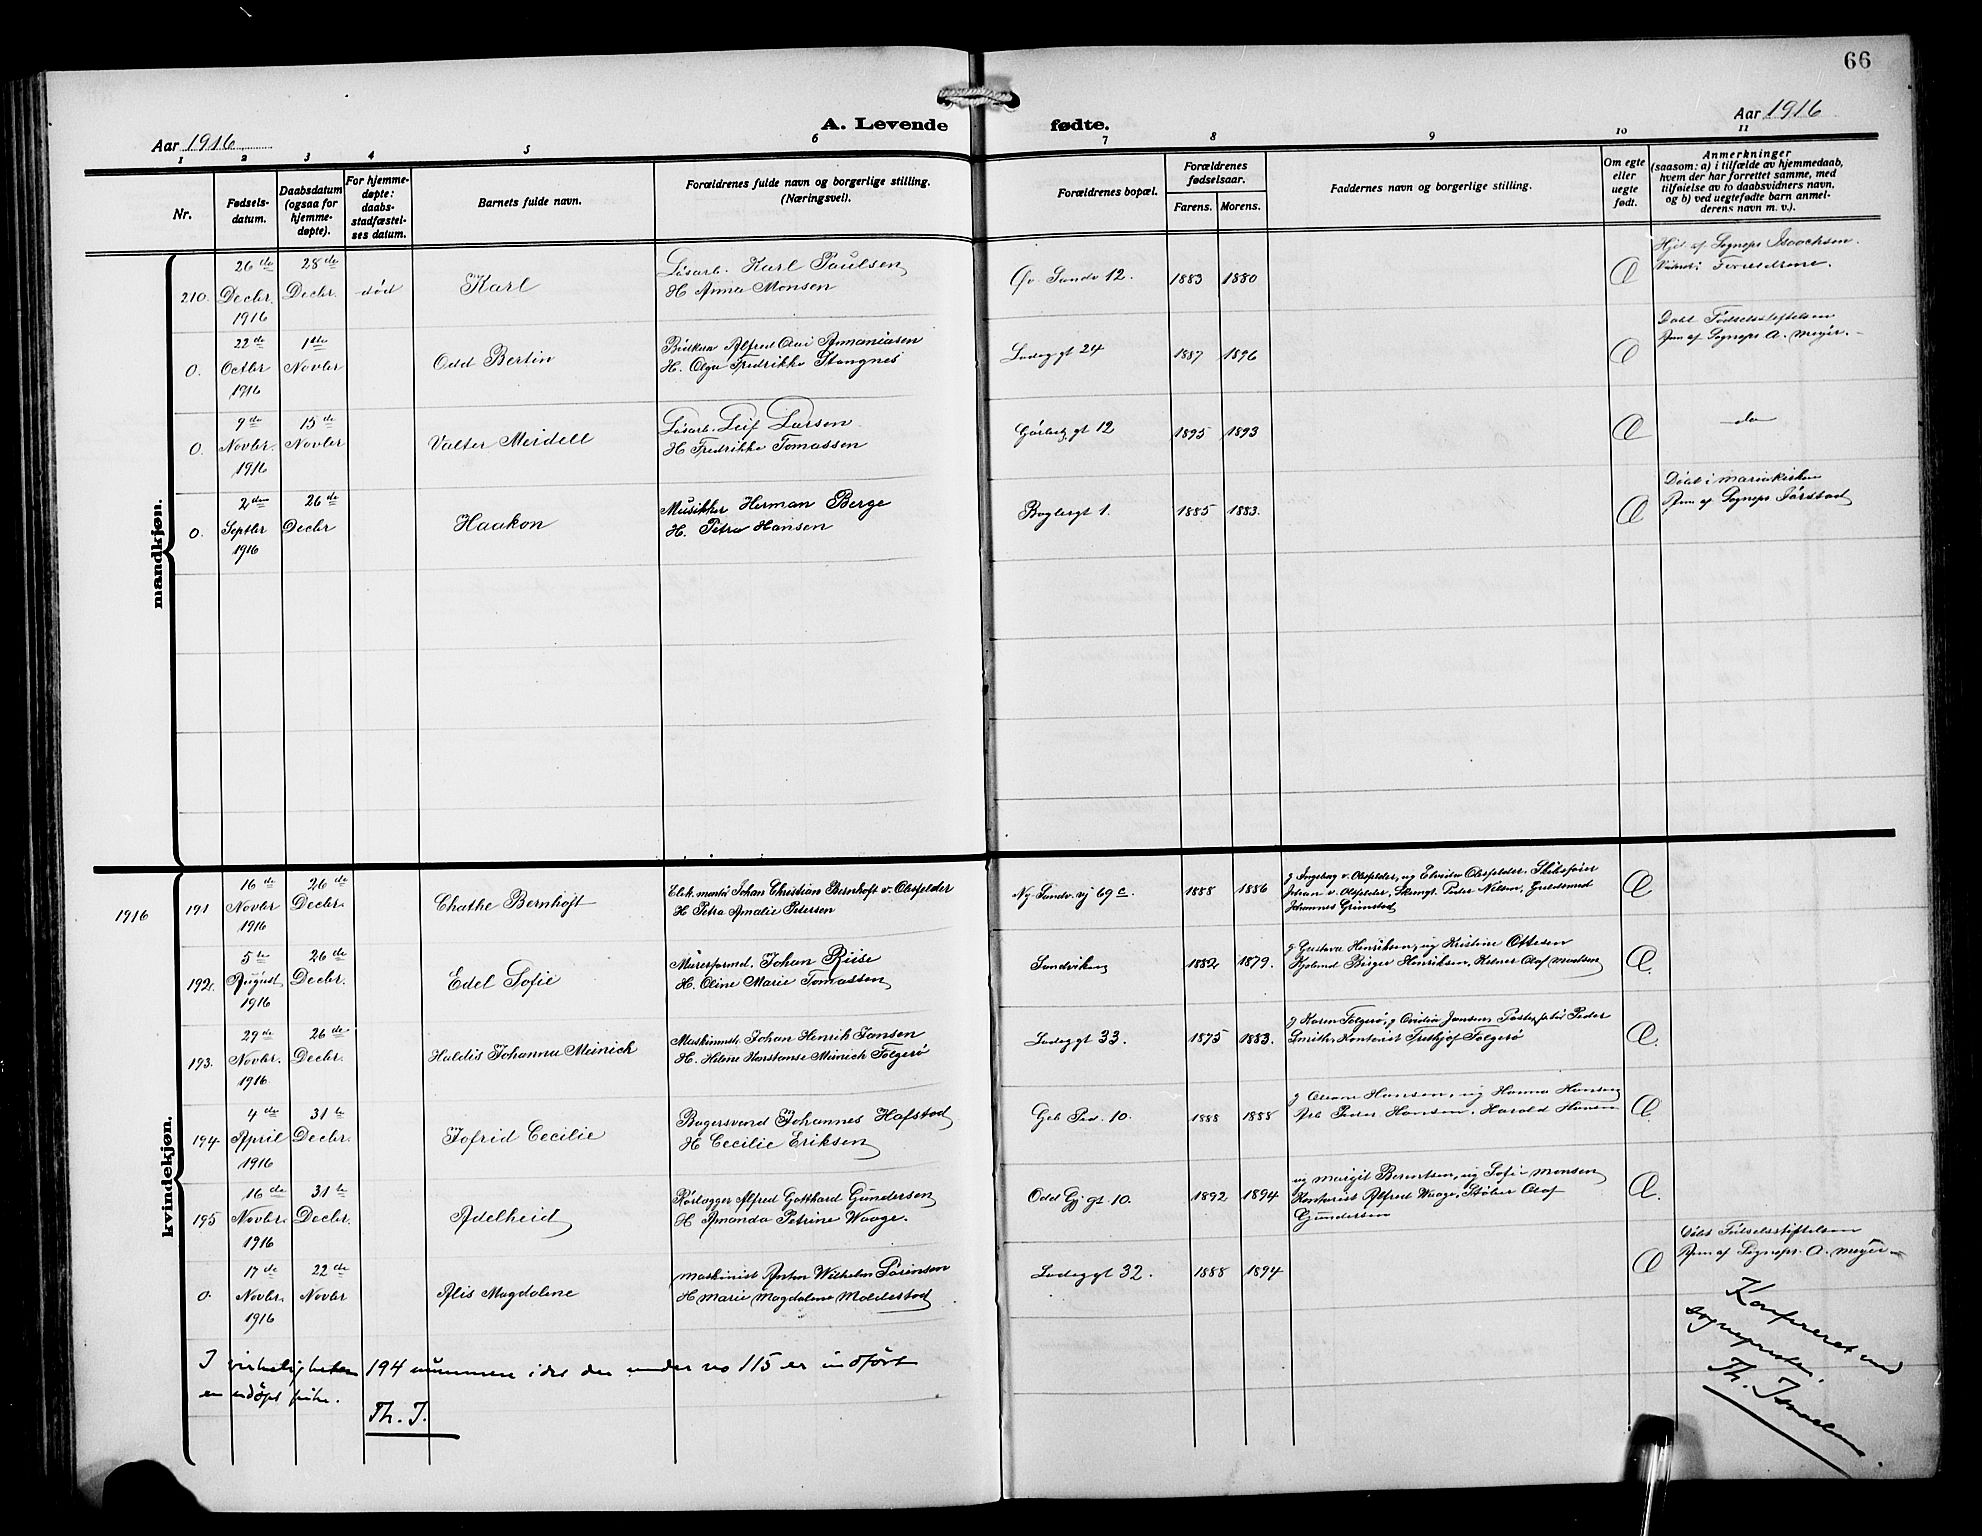 66
Aar 1916 A. Levende fødte. Aar 1916
1 2 3 4 5 6 7 8 9 10 11
Nr.
Fødsels-
datum.
Daabsdatum
(ogsaa for
hjemme-
døpte).
For hjemme-
døpte:
daabs-
stadfæstel-
ses datum.
Barnets fulde navn.
Forældrenes fulde navn og borgerlige stilling.
(Næringsvei).
Forældrenes bopæl.
Forældrenes
fødselsaar.
Farens. Morens.
Faddernes navn og borgerlige stilling.
Om egte
eller
uegte
født.
Anmerkninger
(saasom: a) i tilfælde av hjemmedaab,
hvem der har forrettet samme, med
tilføielse av to daabsvidners navn,
og b) ved uegtefødte barn anmel-
derens navn m. v.).
mandkjøn.
210. 26de Decbr. 1916 28de Decbr. død Karl
Løsarb. Karl Paulsen
H Anna Monsen
Øv. Sandv 12. 1883 1880 Æ
Hjd. af Sognepr Isaachsen.
0. 22de Octbr 1916 1ste Novbr Odd Bertin
Alfred Olai Ammaniasen
H. Olga Fredrikke Stangnes
Ladeg gt 24 1887 1896 Æ
Døbt Fødselsstiftelsen
Anm af Sognepr A. Meyer.
0. 9de Novbr. 1916 15de Novbr Valter Meidell
Løsarb. Leif Larsen
H Fredrikke Tomassen
gt 12 1895 1893 Æ
do
0. 2den Septbr 1916 26de Decbr Haakon
Musikker Herman Berge
H. Petra Hansen
Baglergt 1. 1885 1883. Æ
Døbt i Mariakirken
Anm af Sognepr Jørstad
kvindekjøn.
1916
191 16de Novbr 1916 26de Decbr. Chathe Bernhoft
Elek. montø Johan Christian Bernhoft v. Olsfelder
H Petra Amalie Petersen
Ny. Sandv. vj 69c. 1888 1886
g Ingeborg v. Olsfelder, ug Elvida Olsfelder Skibsfører
Johan v. Olsfelder, Peder Nilsen, Guldsmed
Johannes Grimstad
Æ
192. 5te August 1916 26de Decbr. Edel Sofie
Murerformd. Johan Riise
H. Oline Marie Tomassen
Sandviken 1882 1879.
g Gustava Henriksen, ug Kristine Ottesen
Birger Henriksen, Kelner Olaf Madsen
Æ.
193. 29de Novbr. 1916 26de Decbr. Haldis Johanna Meinich
Maskinmstr Johan Henrik Jansen
H. Helene Konstanse Meinich Folgerø
Ladeg gt 33. 1875 1883.
g Karen Folgerø, g Ovidia Jansen Peder
Smith, Kontorist Frithjof Folgerø
Æ.
194. 4de April 1916 31te Decbr. Jofrid Cecilie
Bagersvend Johannes Hafstad
H Cecilie Eriksen
Geb Ped. 10. 1888 1888
g Oleane Hansen, ug Hanna Hansen
Arb Peder Hansen, Harald Hansen
Æ
195 16de Novbr. 1916 31te Decbr. Adelheid
Rørlægger Alfred Gotthard Gundersen
H Amanda Petrine Waage.
Odd Gj gt 10. 1892 1894
ug Margit Berentsen, ug Sofie Monsen
Kontorist Alfred Waage, Støber Olaf
Gundersen
Æ.
0. 17de Novbr. 1916 22de Novbr Alis Magdalene
Maskinist Anton Wilhelm Sörensen
H Marie Magdalene Moldestad
Ladeg gt 32. 1888 1894 Æ
Døbt Fødselsstiftelsen
Anm af Sognepr. A. Meyer
I virkeligheten 194 nummere, idet der under no 115 er indført
en udöpt pike.
Th. I.
Konfereret med
sogneprestens.
Th. Isaachsen.